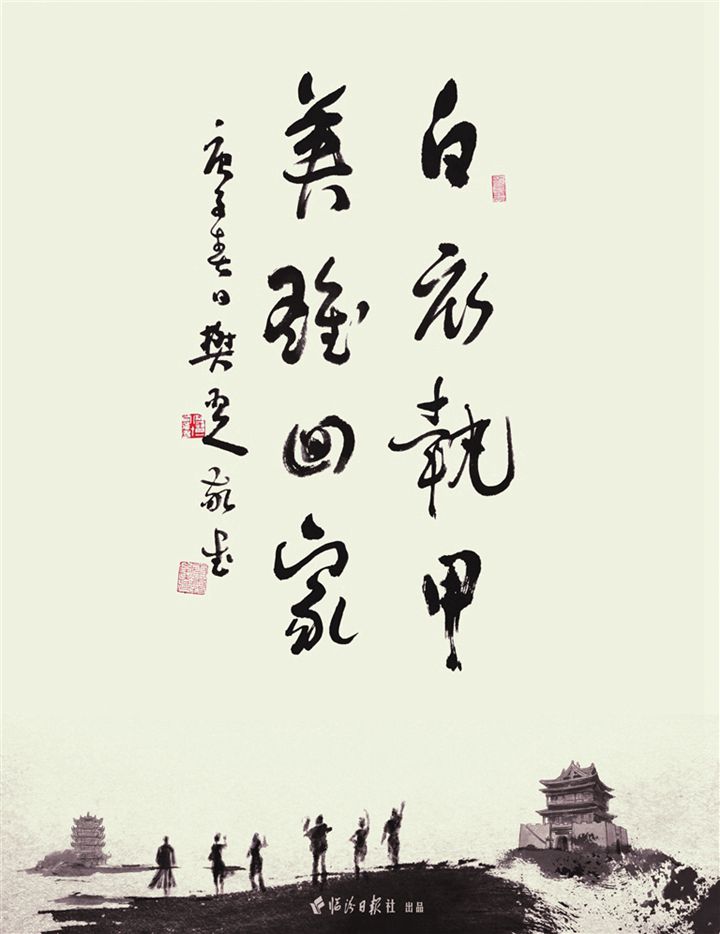 白衣執甲
英雄回家
庚子春日樊 敬書
临汾日报社 出品